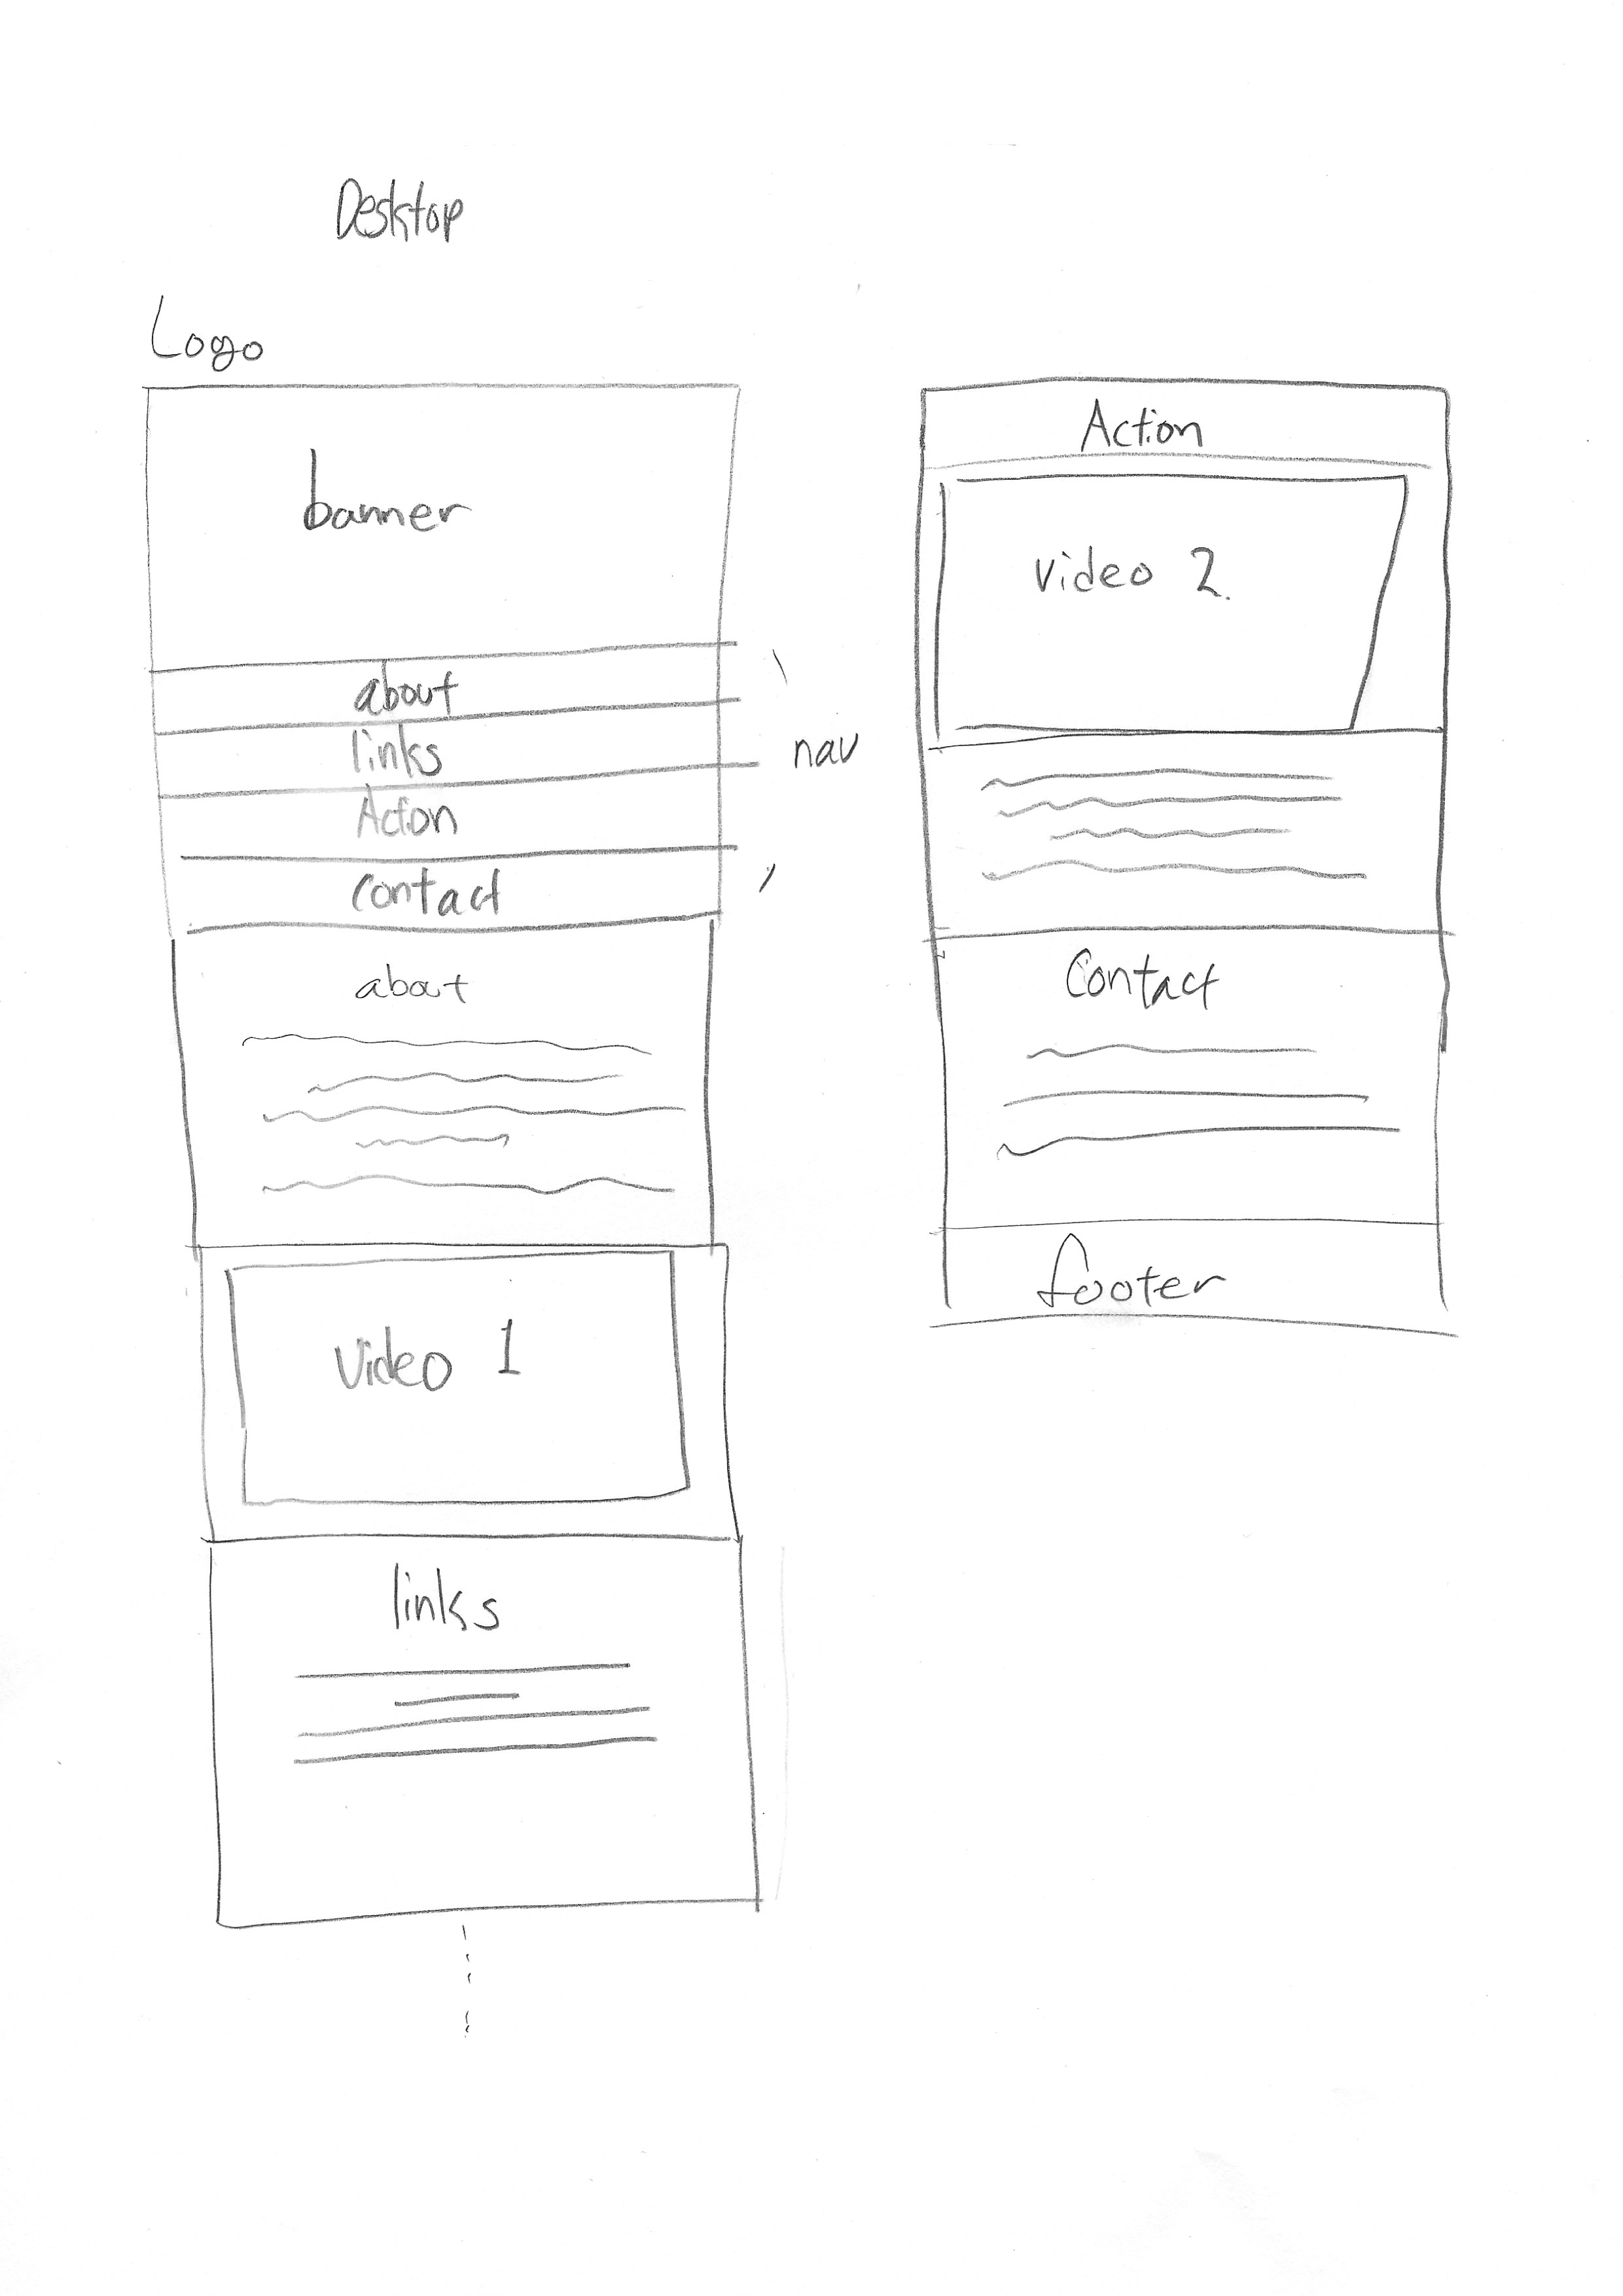 Desktop
Logo
banner
about
links
Action
contact
nav
about
Video 1
links
Action
Video 2.
Contact
footer